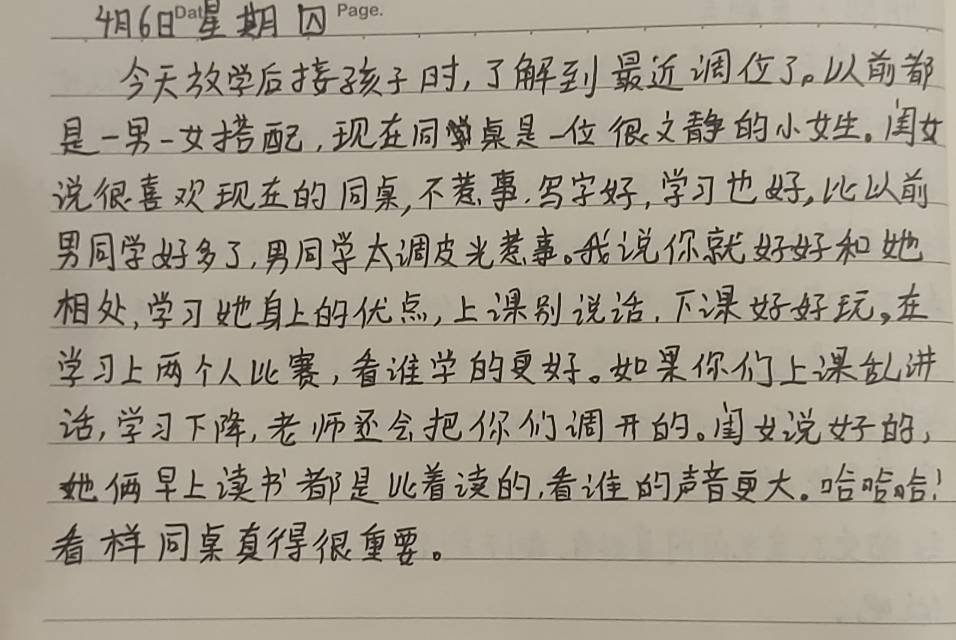 4月6日Date星期四 Page.
今天放学后接孩子时,了解到最近调位了。以前都
是一男一女搭配,现在同桌是一位很文静的小女生。闺女
说很喜欢现在的同桌,不惹事.写字好,学习也好,比以前
男同学好多了,男同学太调皮光惹事。我说你就好好和她
相处,学习她身上的优点,上课别说话.下课好好玩。在
学习上两个人比赛,看谁学的更好。如果你们上课乱讲
话,学习下降,老师还会把你们调开的。闺女说好的,
她俩早上读书都是比着读的,看谁的声音更大。哈哈哈!
看样同桌真得很重要。